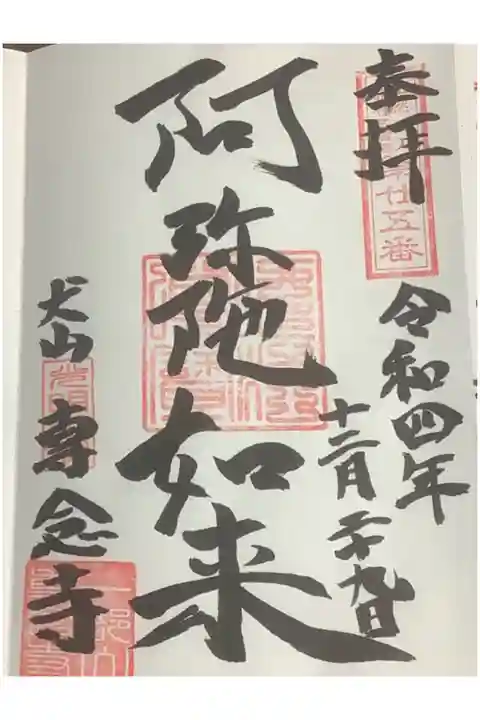 奉拝
令和四年
十二月二十九日
阿弥陀如来
犬山 専念寺
社五番